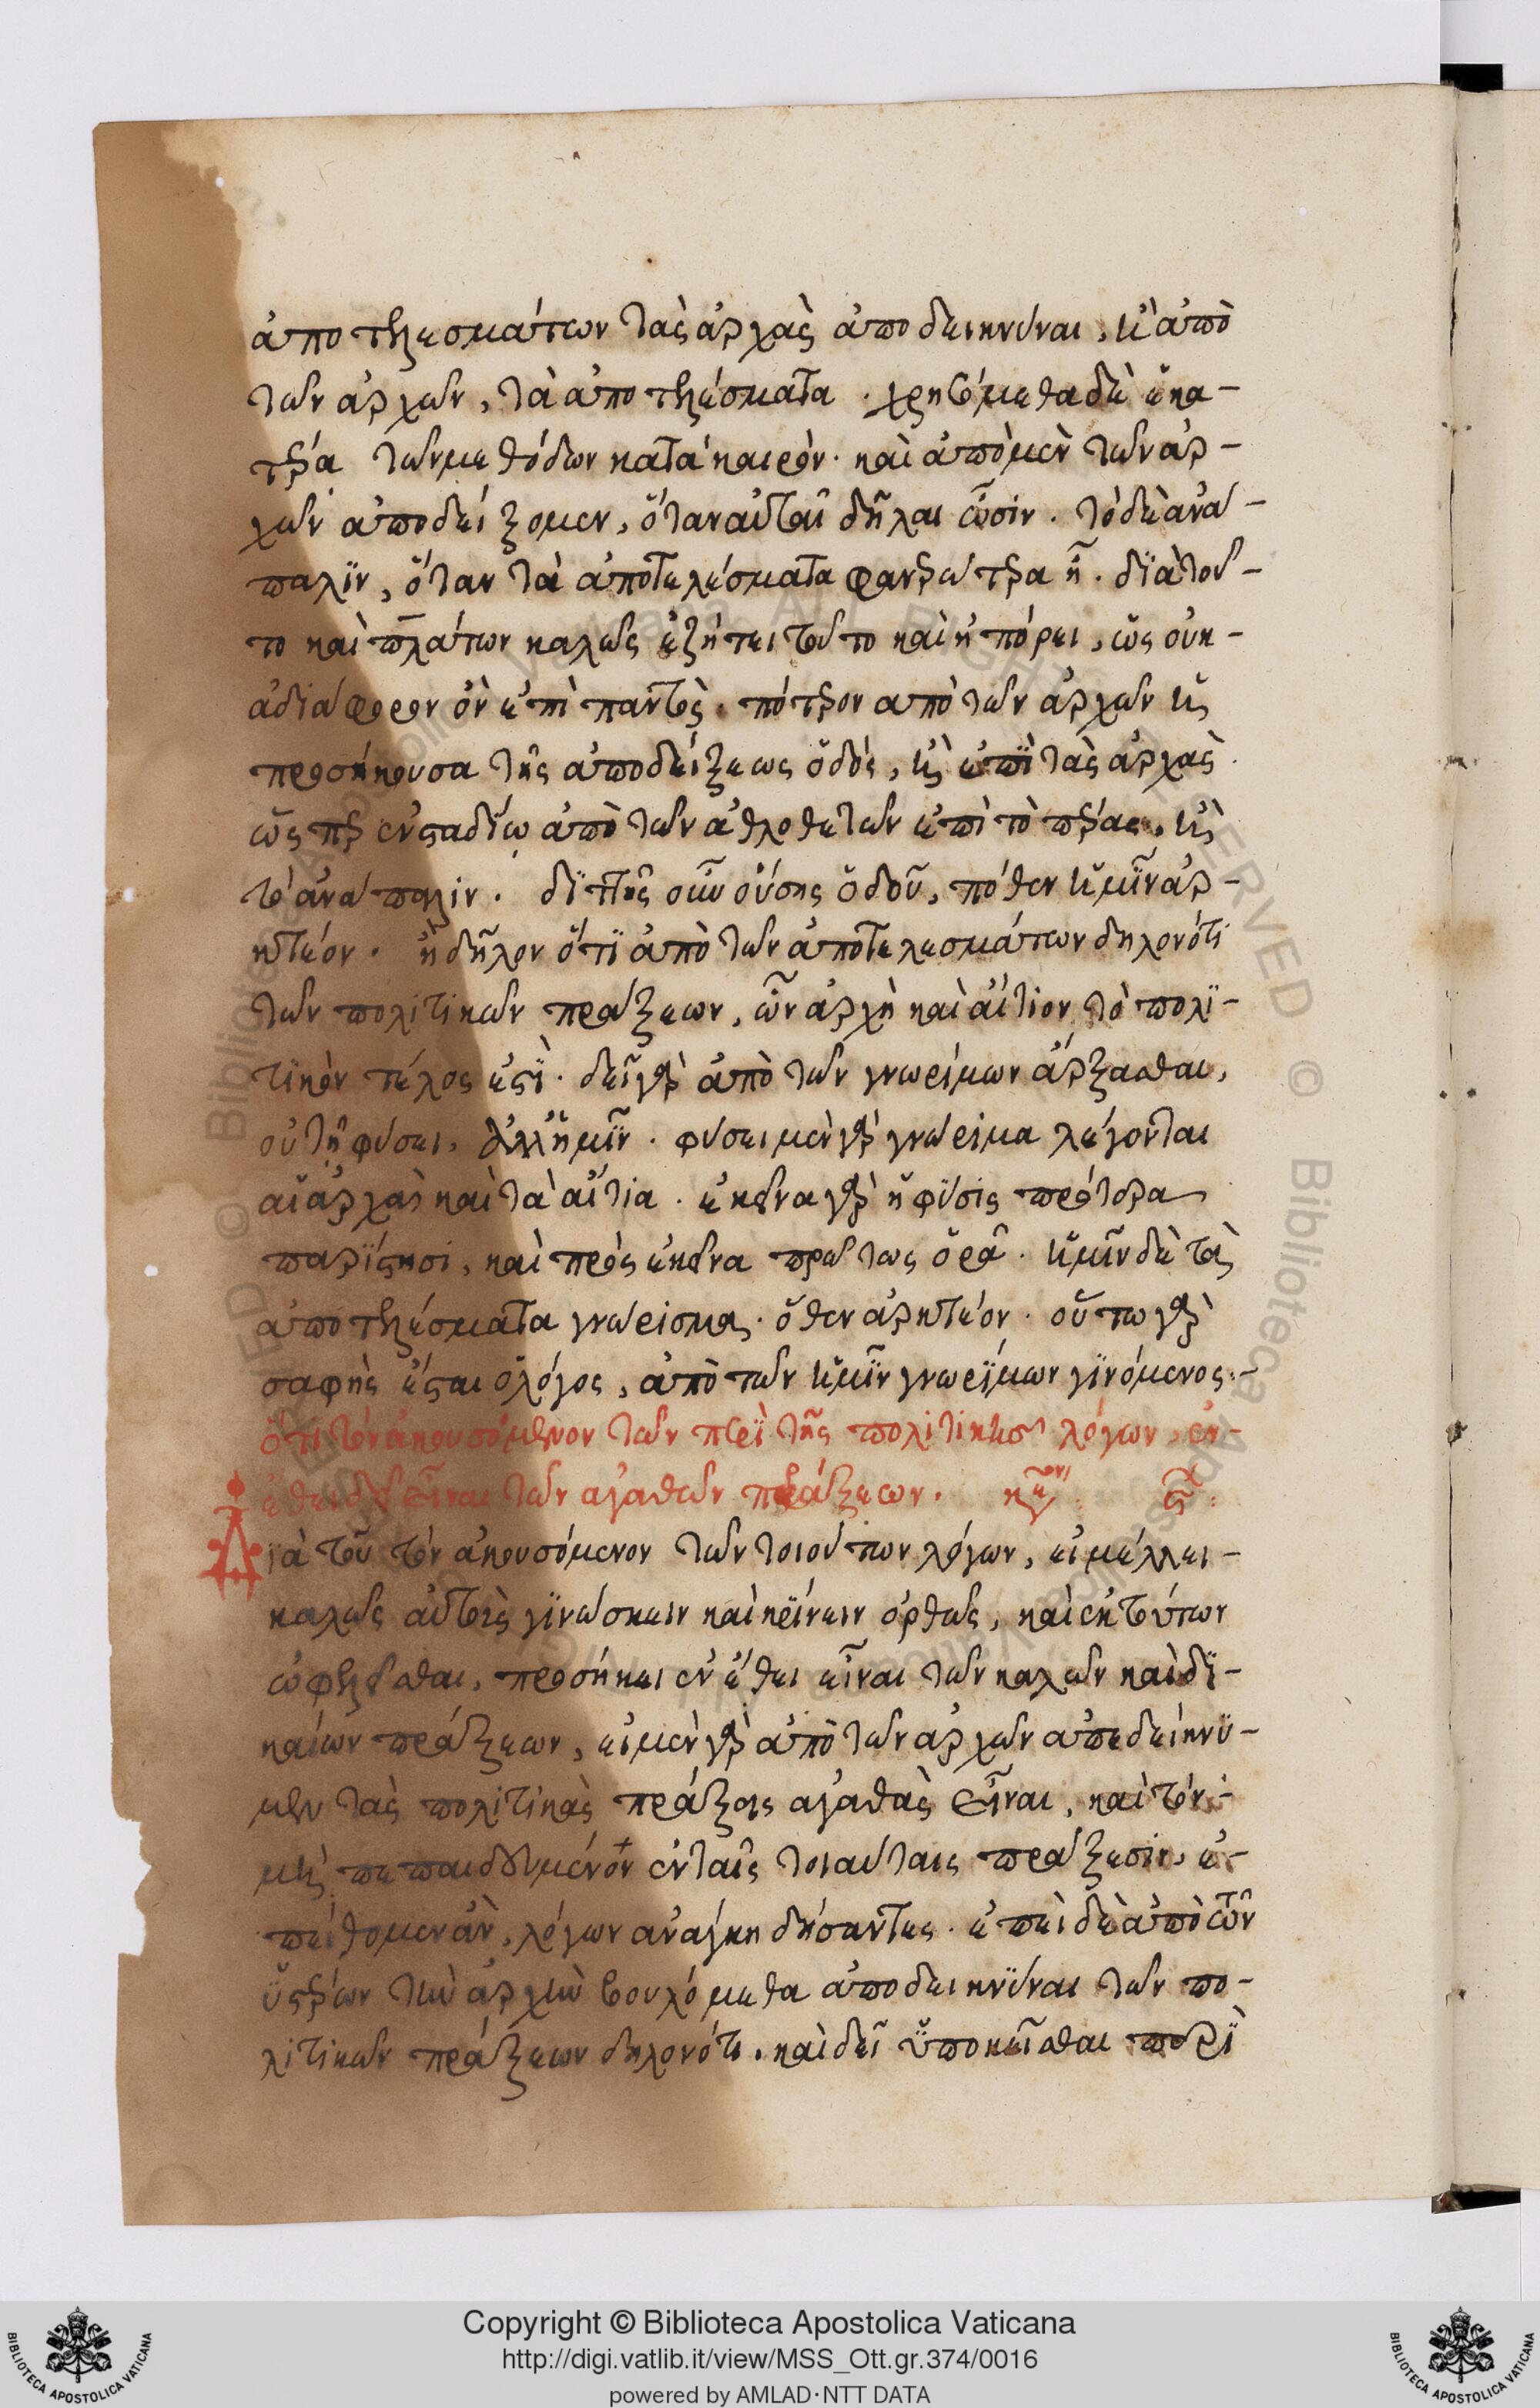 ἀποτελεσμάτων τὰς ἀρχὰς ἀποδεικνύναι, ἢ ἀπὸ
τῶν ἀρχῶν, τὰ ἀποτελέσματα. χρησόμεθα δὲ ἑκα-
τέρα τῶν μεθόδων κατὰ καιρόν. καὶ ἀπὸ μὲν τῶν ἀρ-
χῶν ἀποδείξομεν, ὅταν αὗται δῆλαι ὦσιν. τὸ δὲ ἀνά-
παλϊν, ὅταν τὰ ἀποτελέσματα φανερώτερα ἦ. δϊὰ τοῦ-
το καὶ πλάτων καλῶς ἐζήτει τοῦτο καὶ ἠπόρει, ὡς οὐκ-
ἀδιάφορον ὂν ἐπὶ παντὸς. πότερον ἀπὸ τῶν ἀρχῶν ἡ
προσήκουσα τῆς ἀποδείξεως ὁδός, ἢ ἐπϊ τὰς ἀρχὰς.
ὥσπερ ἐν σταδίω ἀπὸ τῶν ἀθλοθετῶν ἐπὶ τὸ πέρας, ἢ
τὸ ἀνάπαλιν. διττῆς οὖν οὔσης ὁδοῦ, πόθεν ἡμῖν ἀρ-
κτέον. ἢ δῆλον ὅτϊ ἀπὸ τῶν ἀποτελεσμάτων δηλονότι
τῶν πολιτικῶν πράξεων, ὧν ἀρχὴ καὶ αἴτιον τὸ πολϊ-
τικὸν τέλος ἐστϊ. δεῖ γὰρ ἀπὸ τῶν γνωρίμων ἄρξασθαι,
οὐ τῇ φύσει, ἀλλ' ἡμῖν. φύσει μὲν γὰρ γνώριμα λέγονται
αἱ ἀρχαὶ καὶ τὰ αἴτια. ἐκεῖνα γὰρ ἡ φύσις πρότερα
παρίστησι, καὶ πρὸς ἐκεῖνα πρώτως ὁρᾶ. ἡμῖν δὲ τὰ
ἀποτελέσματα γνώρισμα. ὅθεν ἀρκτέον. οὕτω γὰρ
σαφὴς ἔσται ὁ λόγος, ἀπὸ τῶν ἡμῖν γνωρίμων γϊνόμενος.-
ὅτι τὸν ἀκουσόμενον τῶν περὶ τῆς πολιτικῆς λόγων, ἐν-
ἔθει δεῖ εἶναι τῶν ἀγαθῶν πράξεων.
Διὰ τοῦ τὸν ἀκουσόμενον τῶν τοιούτων λόγων, εἰ μέλλει-
καλῶς αὐτοὺς γϊνώσκειν καὶ κρίνειν ὀρθῶς, καὶ ἐκ τούτων
ὠφελεῖσθαι, προσήκει ἐν ἔθει εἶναι τῶν καλῶν καὶ δϊ-
καίων πράξεων, εἰ μὲν γὰρ ἀπὸ τῶν ἀρχῶν ἀπεδείκνϋ-
μεν τὰς πολιτικὰς πράξεις ἀγαθὰς εἶναι, καὶ τὸν-
μὴ πεπαιδευμένον ἐν ταῖς τοιαύταις πράξεσιν, ἐ-
πείθομεν ἂν, λόγων ἀνάγκη δήσαντες. ἐπεὶ δὲ ἀπὸ τῶν
ὑστέρων τὴν ἀρχὴν βουλόμεθα ἀποδεικνϋναι τῶν πο-
λιτικῶν πράξεων δηλονότι. καὶ δεῖ ὑποκεῖσθαι περϊ
Copyright © Biblioteca Apostolica Vaticana
http://digi.vatlib.it/view/MSS_Ott.gr.374/0016
powered by AMLAD·NTT DATA